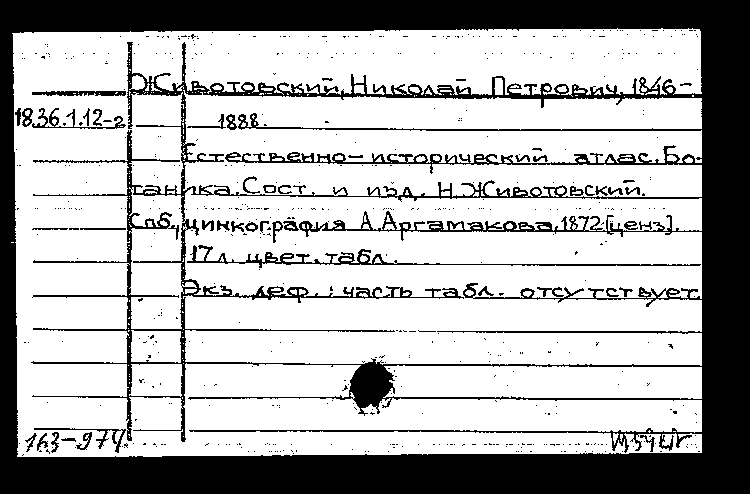 Животовский, Николай Петрович, 1846-
18.36.1.12-2 1888.
Естественно-исторический атлас. Бо-
таника. Сост. и изд. Н. Животовский.
Спб., цинкография А. Аргамакова, 1872 [ценз].
17 л. цвет. табл.
Экз. деф.: часть табл. отсутствует.
163-974